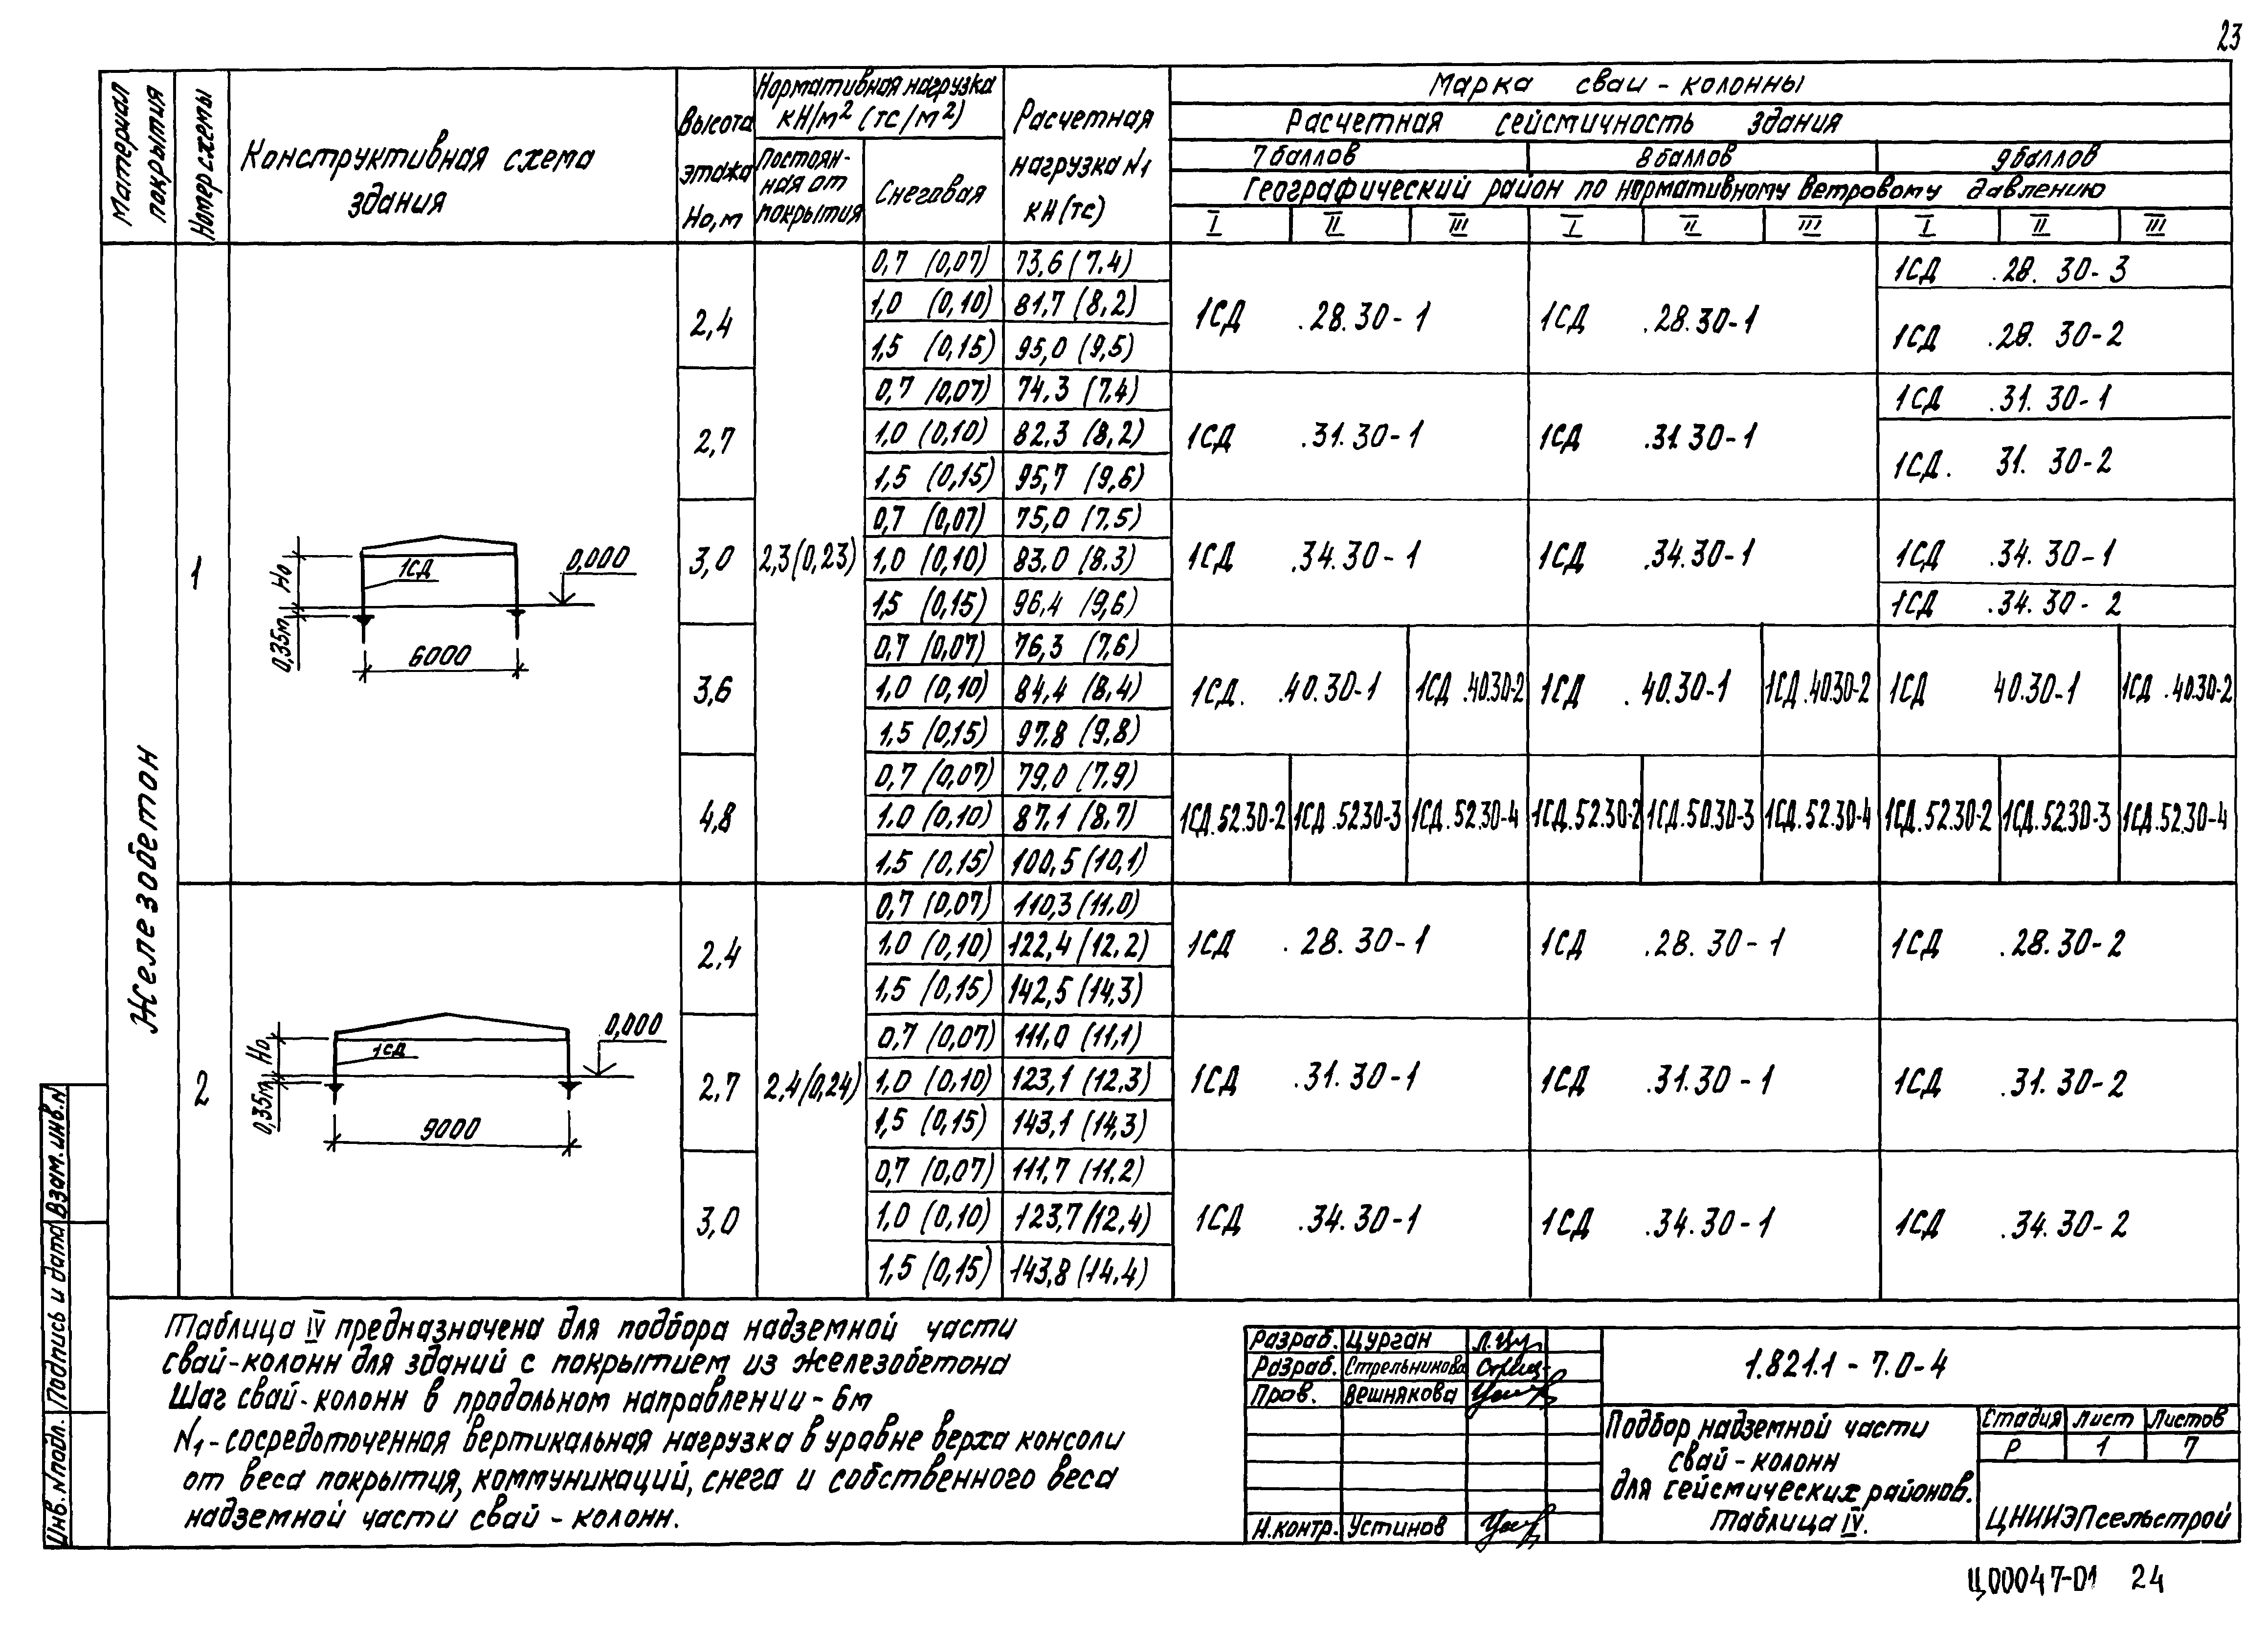 23
Материал покрытия
Номер схемы
Конструктивная схема здания
Высота этажа Но, м
Нормативная нагрузка кН/м² (тс/м²)
Постоянная от покрытия
Снеговая
Расчетная нагрузка N1 кН (тс)
Марка сваи-колонны
Расчетная сейсмичность здания
7 баллов 8 баллов 9 баллов
Географический район по нормативному ветровому давлению
I II III I II III I II III
Железобетон
1
Но
0,35м
1СД
0,000
6000
2,3 (0,23)
2,4
0,7 (0,07) 73,6 (7,4)
1,0 (0,10) 81,7 (8,2)
1,5 (0,15) 95,0 (9,5)
1СД .28.30-1 1СД .28.30-1
1СД .28. 30-3
1СД .28. 30-2
2,7
0,7 (0,07) 74,3 (7,4)
1,0 (0,10) 82,3 (8,2)
1,5 (0,15) 95,7 (9,6)
1СД .31.30-1 1СД .31 30-1
1СД .31. 30-1
1СД. 31. 30-2
3,0
0,7 (0,07) 75,0 (7,5)
1,0 (0,10) 83,0 (8.3)
1,5 (0,15) 96,4 (9,6)
1СД .34.30-1 1СД .34.30-1
1СД .34. 30-1
1СД .34. 30-2
3,6
0,7 (0,07) 76,3 (7,6)
1,0 (0,10) 84,4 (8,4)
1,5 (0,15) 97.8 (9,8)
1СД. .40.30-1 1СД .40.30-2 1СД .40.30-1 1СД .40.30-2 1СД 40.30-1 1СД .40.30-2
4,8
0,7 (0,07) 79,0 (7,9)
1,0 (0,10) 87,1 (8,7)
1,5 (0,15) 100,5 (10,1)
1СД.52.30-2 1СД.52.30-3 1СД.52.30-4 1СД.52.30-2 1СД.50.30-3 1СД.52.30-4 1СД.52.30-2 1СД.52.30-3 1СД.52.30-4
2
Но
0,35м
1СД
0,000
9000
2,4 (0,24)
2,4
0,7 (0,07) 110,3 (11,0)
1,0 (0,10) 122,4 (12,2)
1,5 (0,15) 142,5 (14,3)
1СД .28.30-1 1СД .28.30-1 1СД .28.30-2
2,7
0,7 (0,07) 111,0 (11,1)
1,0 (0,10) 123,1 (12,3)
1,5 (0,15) 143,1 (14,3)
1СД .31.30-1 1СД .31.30-1 1СД .31.30-2
3,0
0,7 (0,07) 111,7 (11,2)
1,0 (0,10) 123,7 (12,4)
1,5 (0,15) 143,8 (14,4)
1СД .34.30-1 1СД .34.30-1 1СД .34.30-2
Таблица IV предназначена для подбора надземной части
свай-колонн для зданий с покрытием из железобетона
Шаг свай-колонн в продольном направлении - 6м
N1 - сосредоточенная вертикальная нагрузка в уровне верха консоли
от веса покрытия, коммуникаций, снега и собственного веса
надземной части свай-колонн.
Разраб. Цурган
Разраб. Стрельникова
Пров. Вешнякова
Н.контр. Устинов
1.821.1 - 7.0-4
Подбор надземной части
свай-колонн
для сейсмических районов.
Таблица IV.
Стадия Лист Листов
Р 1 7
ЦНИИЭПсельстрой
Инв. N подл. Подпись и дата Взам. инв. N
Ц00047-01 24